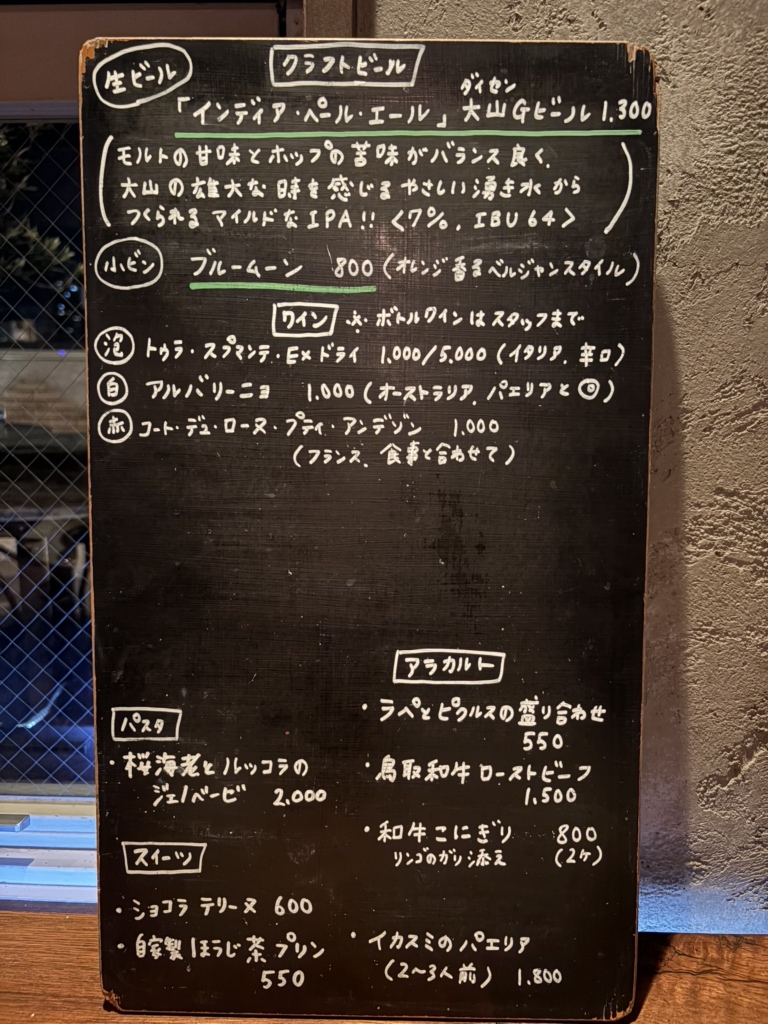 生ビール
クラフトビール
ダイセン
「インディア・ペール・エール」 大山Gビール 1.300
(モルトの甘味とホップの苦味がバランス良く、
大山の雄大な時を感じるやさしい湧き水から
つくられるマイルドなIPA!! <7%, IBU 64>)
小ビン ブルームーン 800 (オレンジ香るベルジャンスタイル)
ワイン ※ボトルワインはスタッフまで
泡 トゥラ・スプマンテ・Exドライ 1.000/5.000 (イタリア、辛口)
白 アルバリーニョ 1.000 (オーストラリア、パエリアと◎)
赤 コート・デュ・ローヌ・プティ・アンデゾン 1.000
(フランス、食事と合わせて)
パスタ
・桜海老とルッコラの
ジェノベーゼ 2.000
スイーツ
・ショコラ テリーヌ 600
・自家製ほうじ茶プリン
550
アラカルト
・ラペとピクルスの盛り合わせ
550
・鳥取和牛ローストビーフ
1.500
・和牛こにぎり 800
リンゴのガリ添え (2ケ)
・イカスミのパエリア
(2〜3人前) 1.800